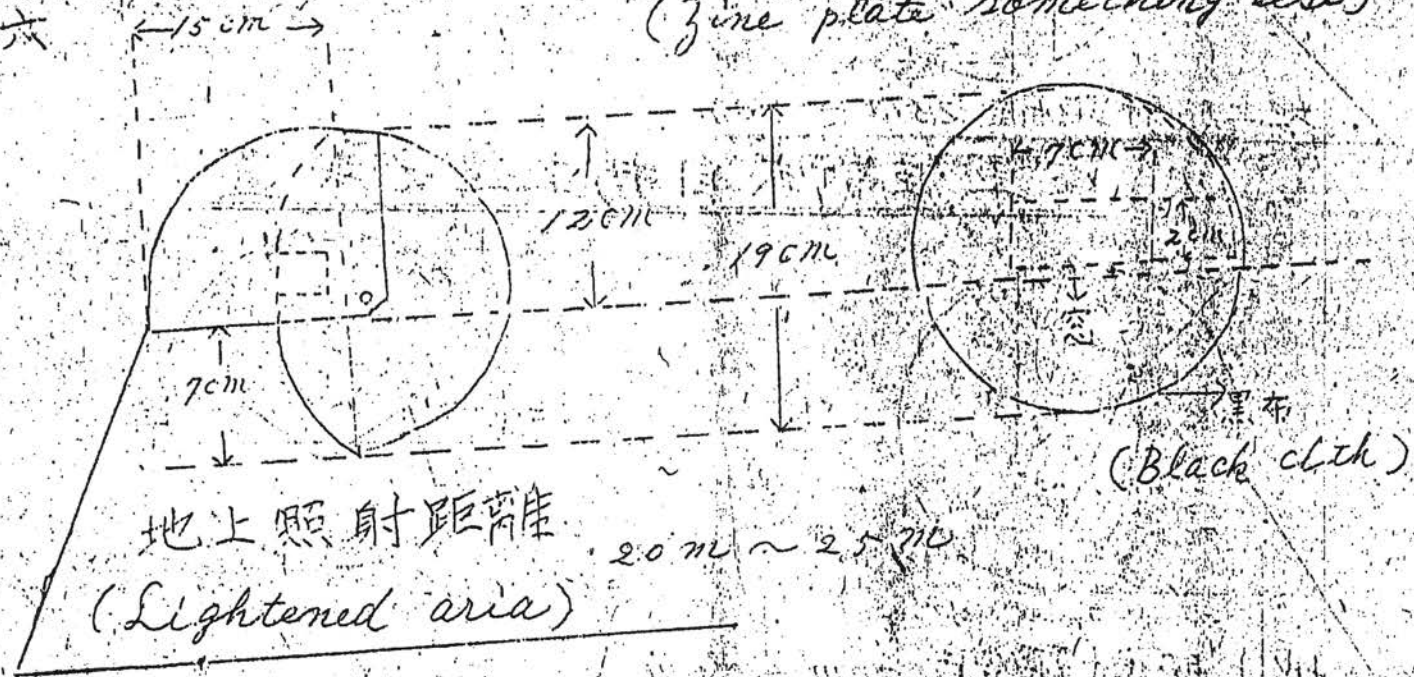 六
15cm
(Zine plate something else)
12cm
19cm
7cm
2cm
7cm
黒布
(Black clth)
地上照射距離
20m~25m
(Lightened aria)